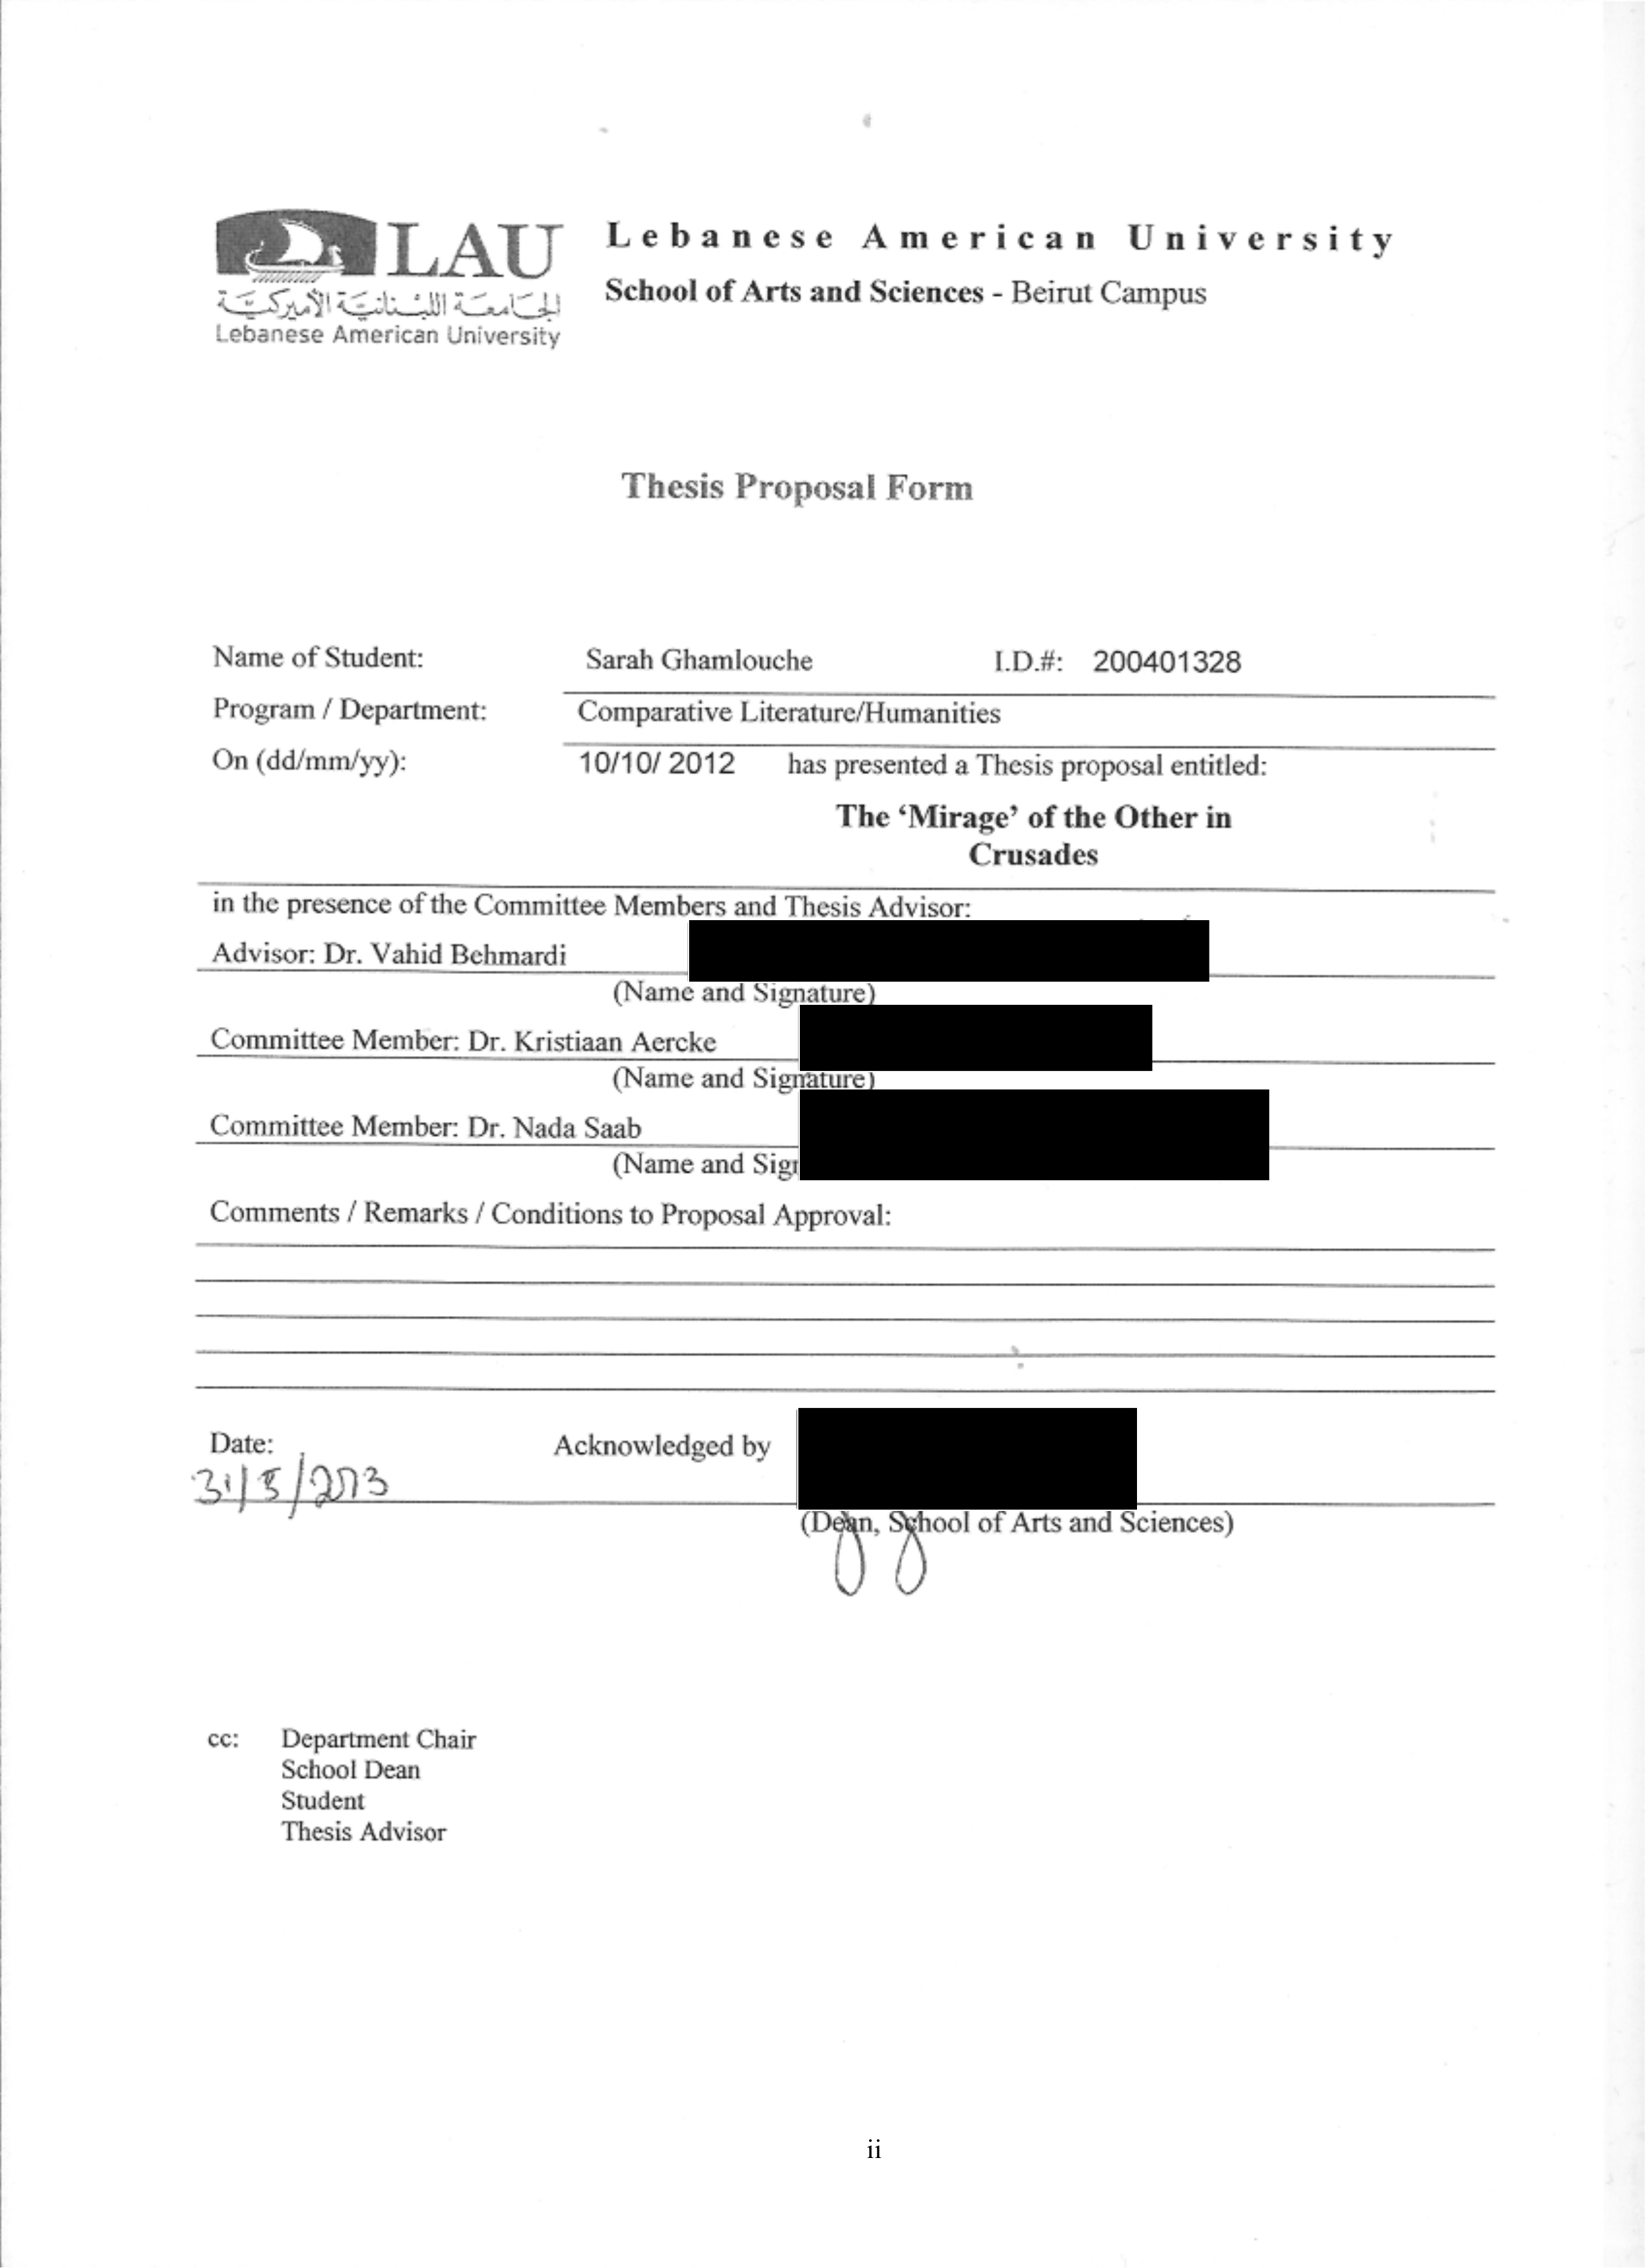 LAU
الجامعة اللبنانية الأميركية
Lebanese American University
Lebanese American University
School of Arts and Sciences - Beirut Campus
Thesis Proposal Form
Name of Student: Sarah Ghamlouche I.D.#: 200401328
Program / Department: Comparative Literature/Humanities
On (dd/mm/yy): 10/10/ 2012 has presented a Thesis proposal entitled:
The ‘Mirage’ of the Other in
Crusades
in the presence of the Committee Members and Thesis Advisor:
Advisor: Dr. Vahid Behmardi
(Name and Signature)
Committee Member: Dr. Kristiaan Aercke
(Name and Signature)
Committee Member: Dr. Nada Saab
(Name and
Comments / Remarks / Conditions to Proposal Approval:
Date: Acknowledged by
31/5/2013
(Dean, School of Arts and Sciences)
cc: Department Chair
School Dean
Student
Thesis Advisor
ii